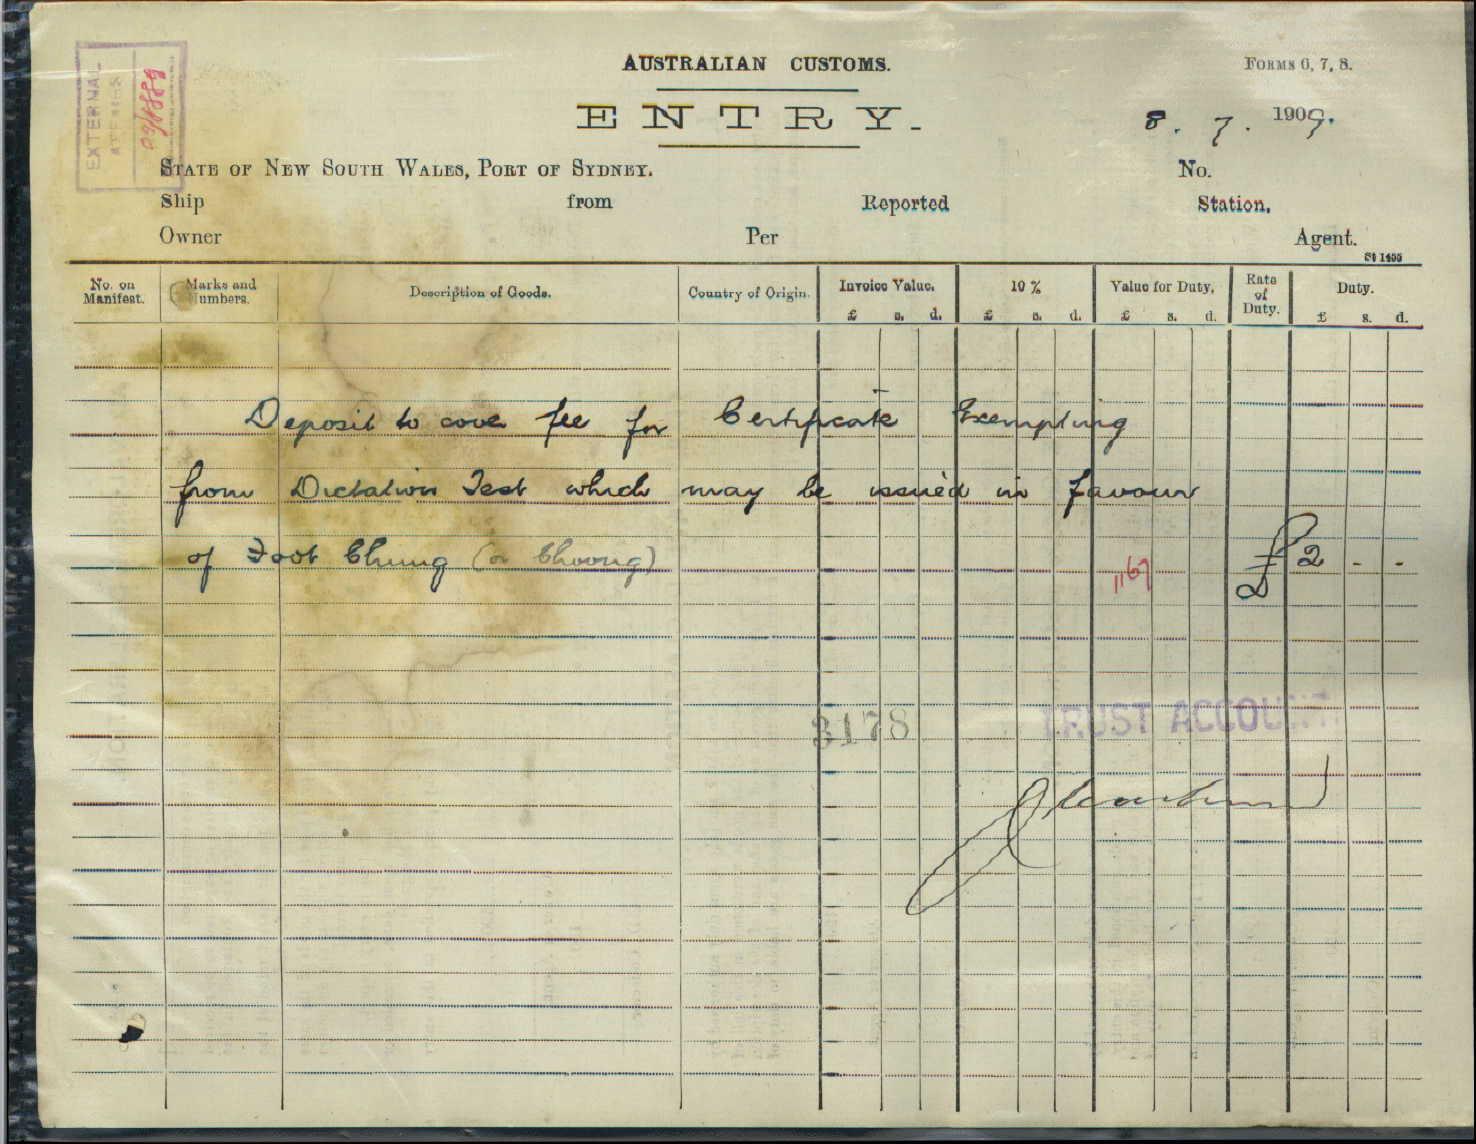 EXTERNAL
AFFAIRS
AUSTRALIAN CUSTOMS.
FORMS 6, 7, 8.
ENTRY.
8. 7. 1909.
STATE OF NEW SOUTH WALES, PORT OF SYDNEY. No.
Ship from Reported Station.
Owner Per Agent.
St 1400
No. on Manifest. Marks and Numbers. Description of Goods. Country of Origin. Invoice Value. 10 % Value for Duty. Rate of Duty. Duty.
£ s. d. £ s. d. £ s. d. £ s. d.
Deposit to cover fee for Certificate Exempting
from Dictation Test which may be issued in favour
of Foot Chung (or Choong) £2 - -
3178 TRUST ACCOUNT